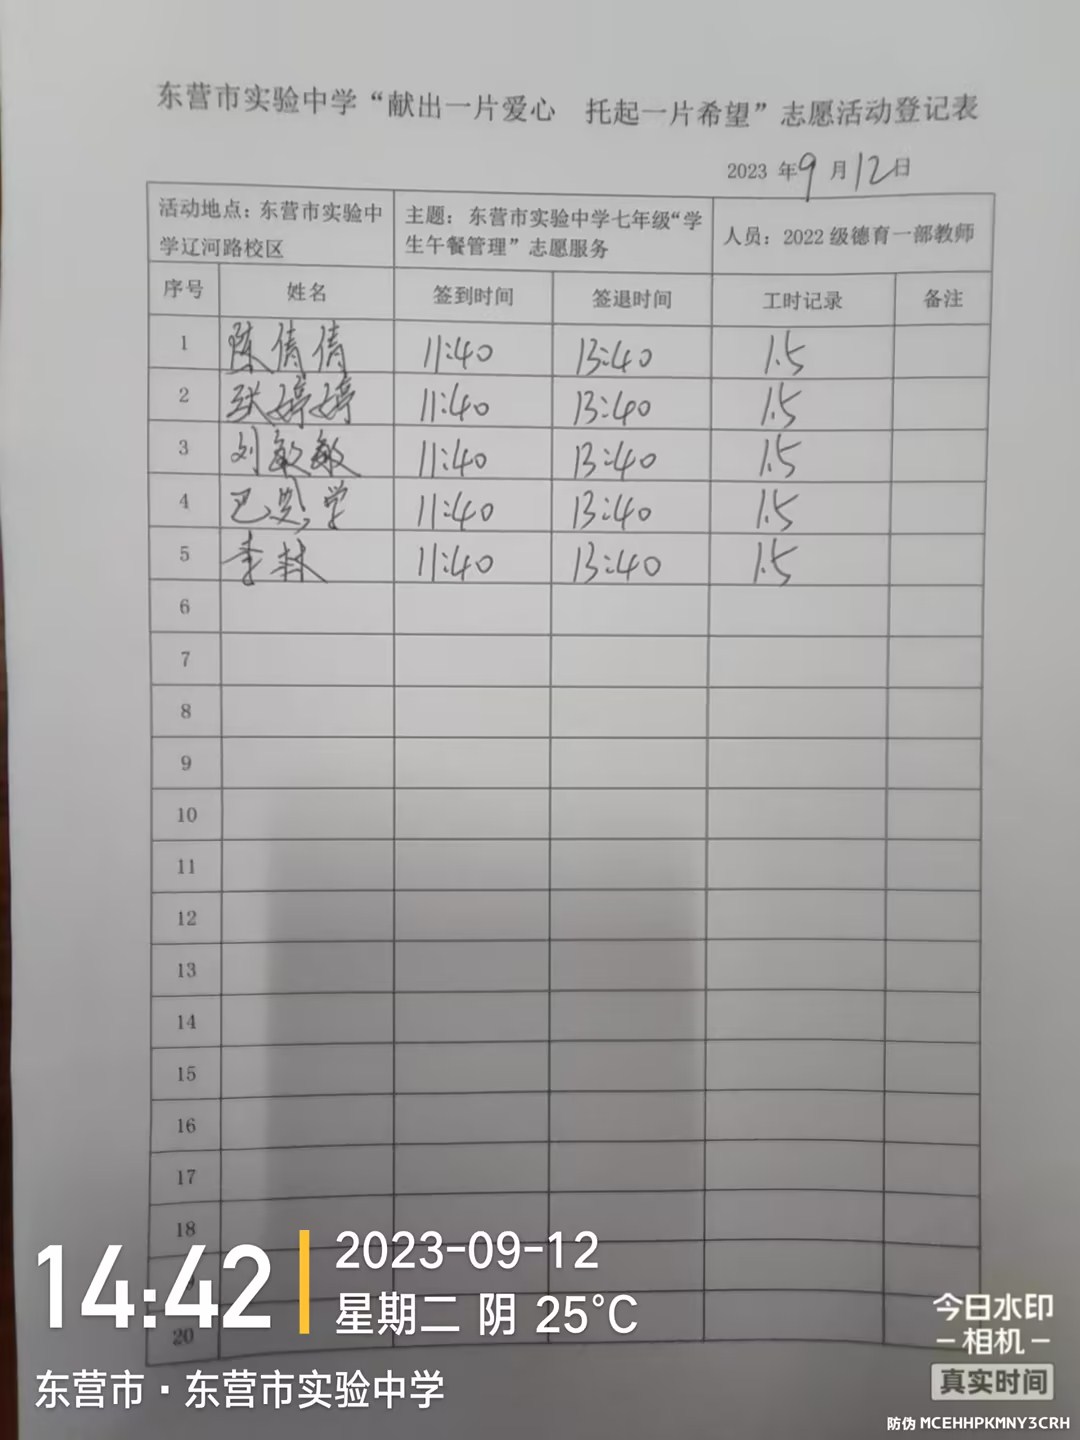 东营市实验中学“献出一片爱心 托起一片希望”志愿活动登记表
2023 年9月12日
活动地点：东营市实验中
学辽河路校区
主题：东营市实验中学七年级“学
生午餐管理”志愿服务
人员：2022级德育一部教师
序号 姓名 签到时间 签退时间 工时记录 备注
1 陈倩倩 11:40 13:40 1.5
2 张婷婷 11:40 13:40 1.5
3 刘敏敏 11:40 13:40 1.5
4 巴 学 11:40 13:40 1.5
5 李林 11:40 13:40 1.5
6
7
8
9
10
11
12
13
14
15
16
17
18
20
14:42
2023-09-12
星期二 阴 25°C
东营市·东营市实验中学
今日水印
相机
真实时间
防伪 MCEHHPKMNY3CRH